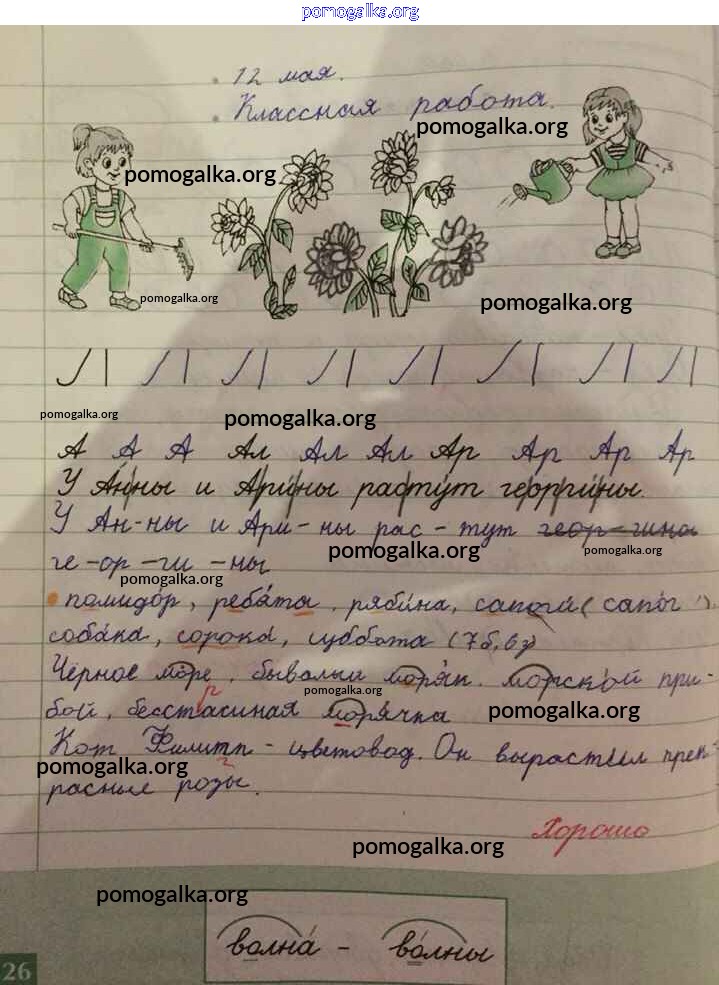 pomogalka.org
12 мая.
Классная работа.
pomogalka.org
pomogalka.org
pomogalka.org
pomogalka.org
pomogalka.org
pomogalka.org
А А А Ал Ал Ал Ар Ар Ар Ар
У Анны и Арины растут георгины.
У Ан-ны и Ари-ны рас-тут геор-гины
pomogalka.org
pomogalka.org
ге-ор-ги-ны
pomogalka.org
помидóр, ребя́та, рябина, сапоги́ (сапóг)
собáка, сорóка, суббóта (7б, 6з)
Чёрное мóре, бывалый моря́к, морскóй при-
pomogalka.org
бой, бесстрашная моря́чка
pomogalka.org
Кот Филипп - цветовод. Он вырастил прек-
pomogalka.org
расные розы.
Хорошо
pomogalka.org
pomogalka.org
волнá - вóлны
26